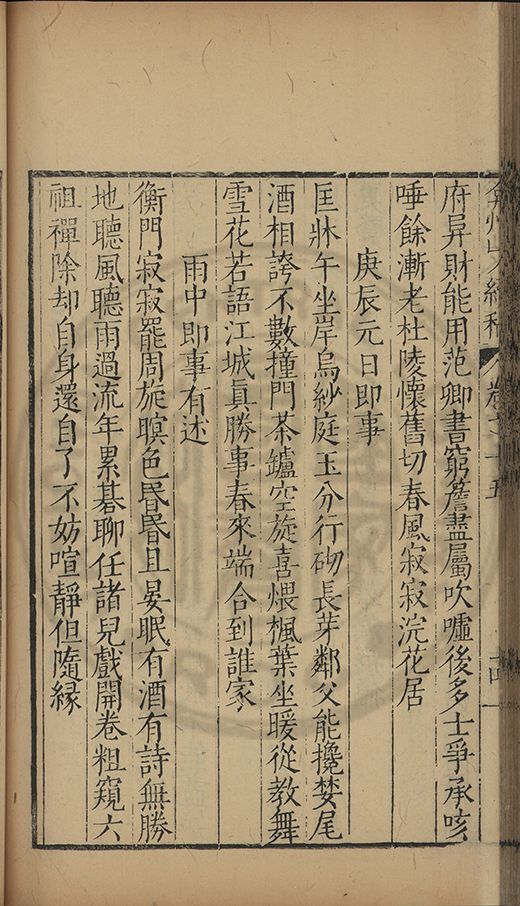 弇州山人續稿 卷之十五 十四
府昇財能用范卿書窮簷盡屬吹嘘後多士爭承咳
唾餘漸老杜陵懷舊切春風寂寂浣花居
庚辰元日即事
匡牀午坐岸烏紗庭玉分行砌長芽鄰父能攙婪尾
酒相誇不數撞門茶鑪空旋喜煨楓葉坐暖從教舞
雪花若語江城真勝事春來端合到誰家
雨中即事有述
衡門寂寂罷周旋暝色昏昏且晏眠有酒有詩無勝
地聽風聽雨過流年累碁聊任諸兒戲開卷粗窺六
祖禪除却自身還自了不妨喧靜但隨緣